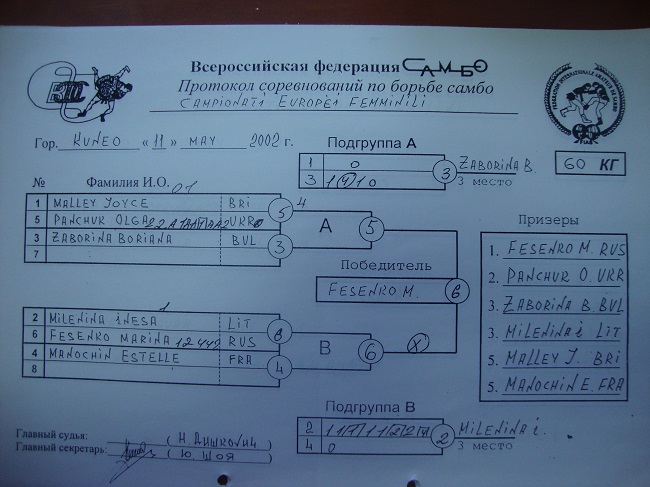 Всероссийская федерация САМБО
Протокол соревнований по борьбе самбо
CAMPIONATI EUROPEI FEMMINILI
Гор. KUNEO « 11 » MAY 2002 г.
Подгруппа А
1 0
3 1 0
3
ZABORINA B.
3 место
60 КГ
№ Фамилия И.О.
1 MALLEY JOYCE BRI
5 PANCHUR OLGA UKR
3 ZABORINA BORIANA BUL
7
5
3
4
А
5
2 MILENINA INESA LIT
6 FESENKO MARINA RUS
4 MANOCHIN ESTELLE FRA
8
4
В
6
Победитель
FESENKO M. 6
Призеры
1. FESENKO M. RUS
2. PANCHUR O. UKR
3. ZABORINA B. BUL
3. MILENINA I LIT
5. MALLEY J. BRI
5. MANOCHIN E. FRA
Подгруппа В
2
4 0
2
MILENINA I.
3 место
Главный судья:
Главный секретарь: ( Ю. ШОЯ )